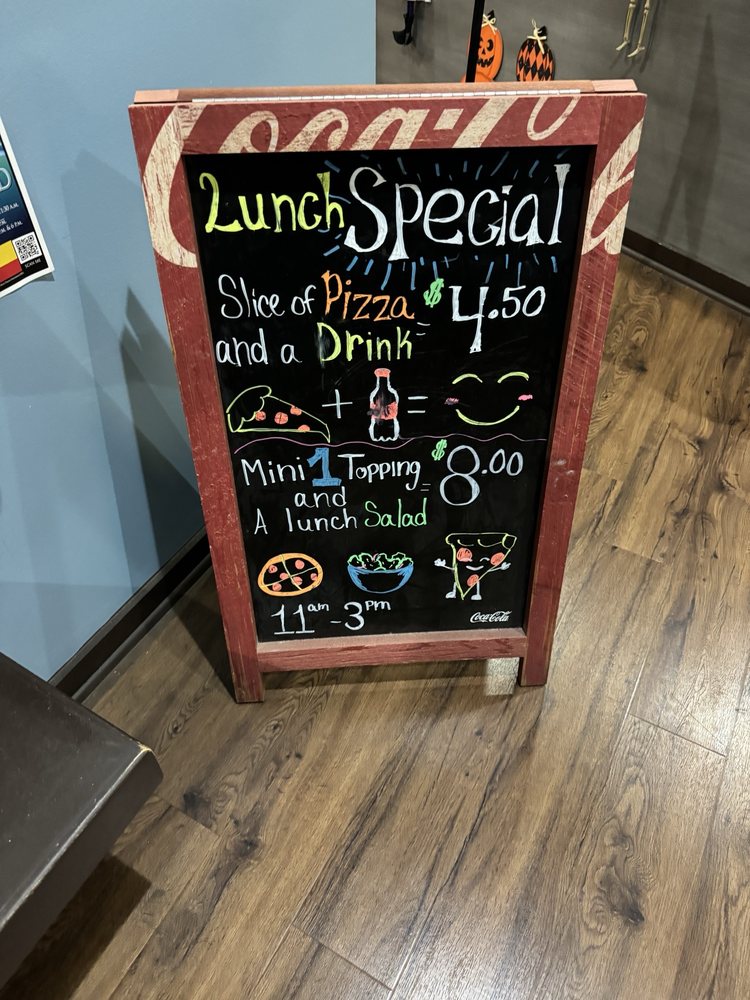 Coca-Cola
Lunch Special
Slice of Pizza $4.50
and a Drink =
+ =
Mini 1 Topping $8.00
and =
A lunch Salad
11am - 3pm
Coca-Cola
SCAN ME